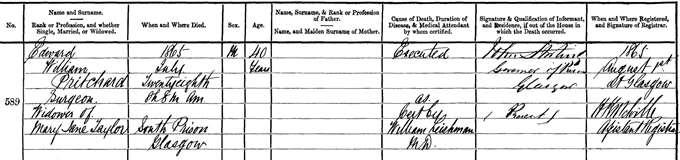 No.
Name and Surname.
Rank or Profession, and whether Single, Married, or Widowed.
When and Where Died.
Sex.
Age.
Name, Surname, & Rank or Profession of Father.
Name, and Maiden Surname of Mother.
Cause of Death, Duration of Disease, & Medical Attendant by whom certified.
Signature & Qualification of Informant, and Residence, if out of the House in which the Death occurred.
When and where Registered, and Signature of Registrar.
589
Edward
William
Pritchard
Surgeon
Widower of
Mary Jane Taylor
1865
July
Twentyeighth
8h 8m AM
South Prison
Glasgow
M
40
Years
Executed
as
Cert by
William Leishman
M.D.
John
Governor of Prison
Glasgow
(Present)
1865
August 1st
At Glasgow
Assistant Registrar